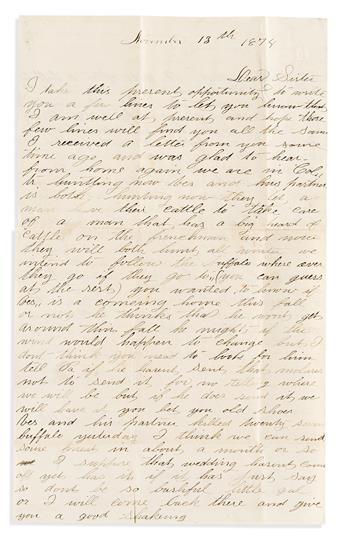 November 13th 1874
Dear Sister
I take this present opportunity to write
you a few lines to let you know that
I am well at present and hope these
few lines will find you all the same
I received a letter from you some
time ago and was glad to hear
from home again we are in Col,
a hunting now
is both hunting now they let a
man have their cattle to take care
of a man that has a big heard of
cattle on the frenchman and now
they will both hunt all winter we
intend to follow the buffalo where ever
they go if they go to, (you can guess
at the rest) you wanted to know if
is a comeing home this fall
or not he thinks that he wont get
around this fall he might if the
wind would happen to change but I
dont think you need to look for him
tell Pa if he havent sent that
not to send it for no telling where
we will be but if he does send it, we
will have it you bet you old shoes
and his partner killed twenty seven
buffalo yesterday I think we can send
some meat in about a month or so
I suppose that wedding havent come
off yet has it if it has just say
so dont be so bashful little gal
or I will come back there and give
you a good shaking